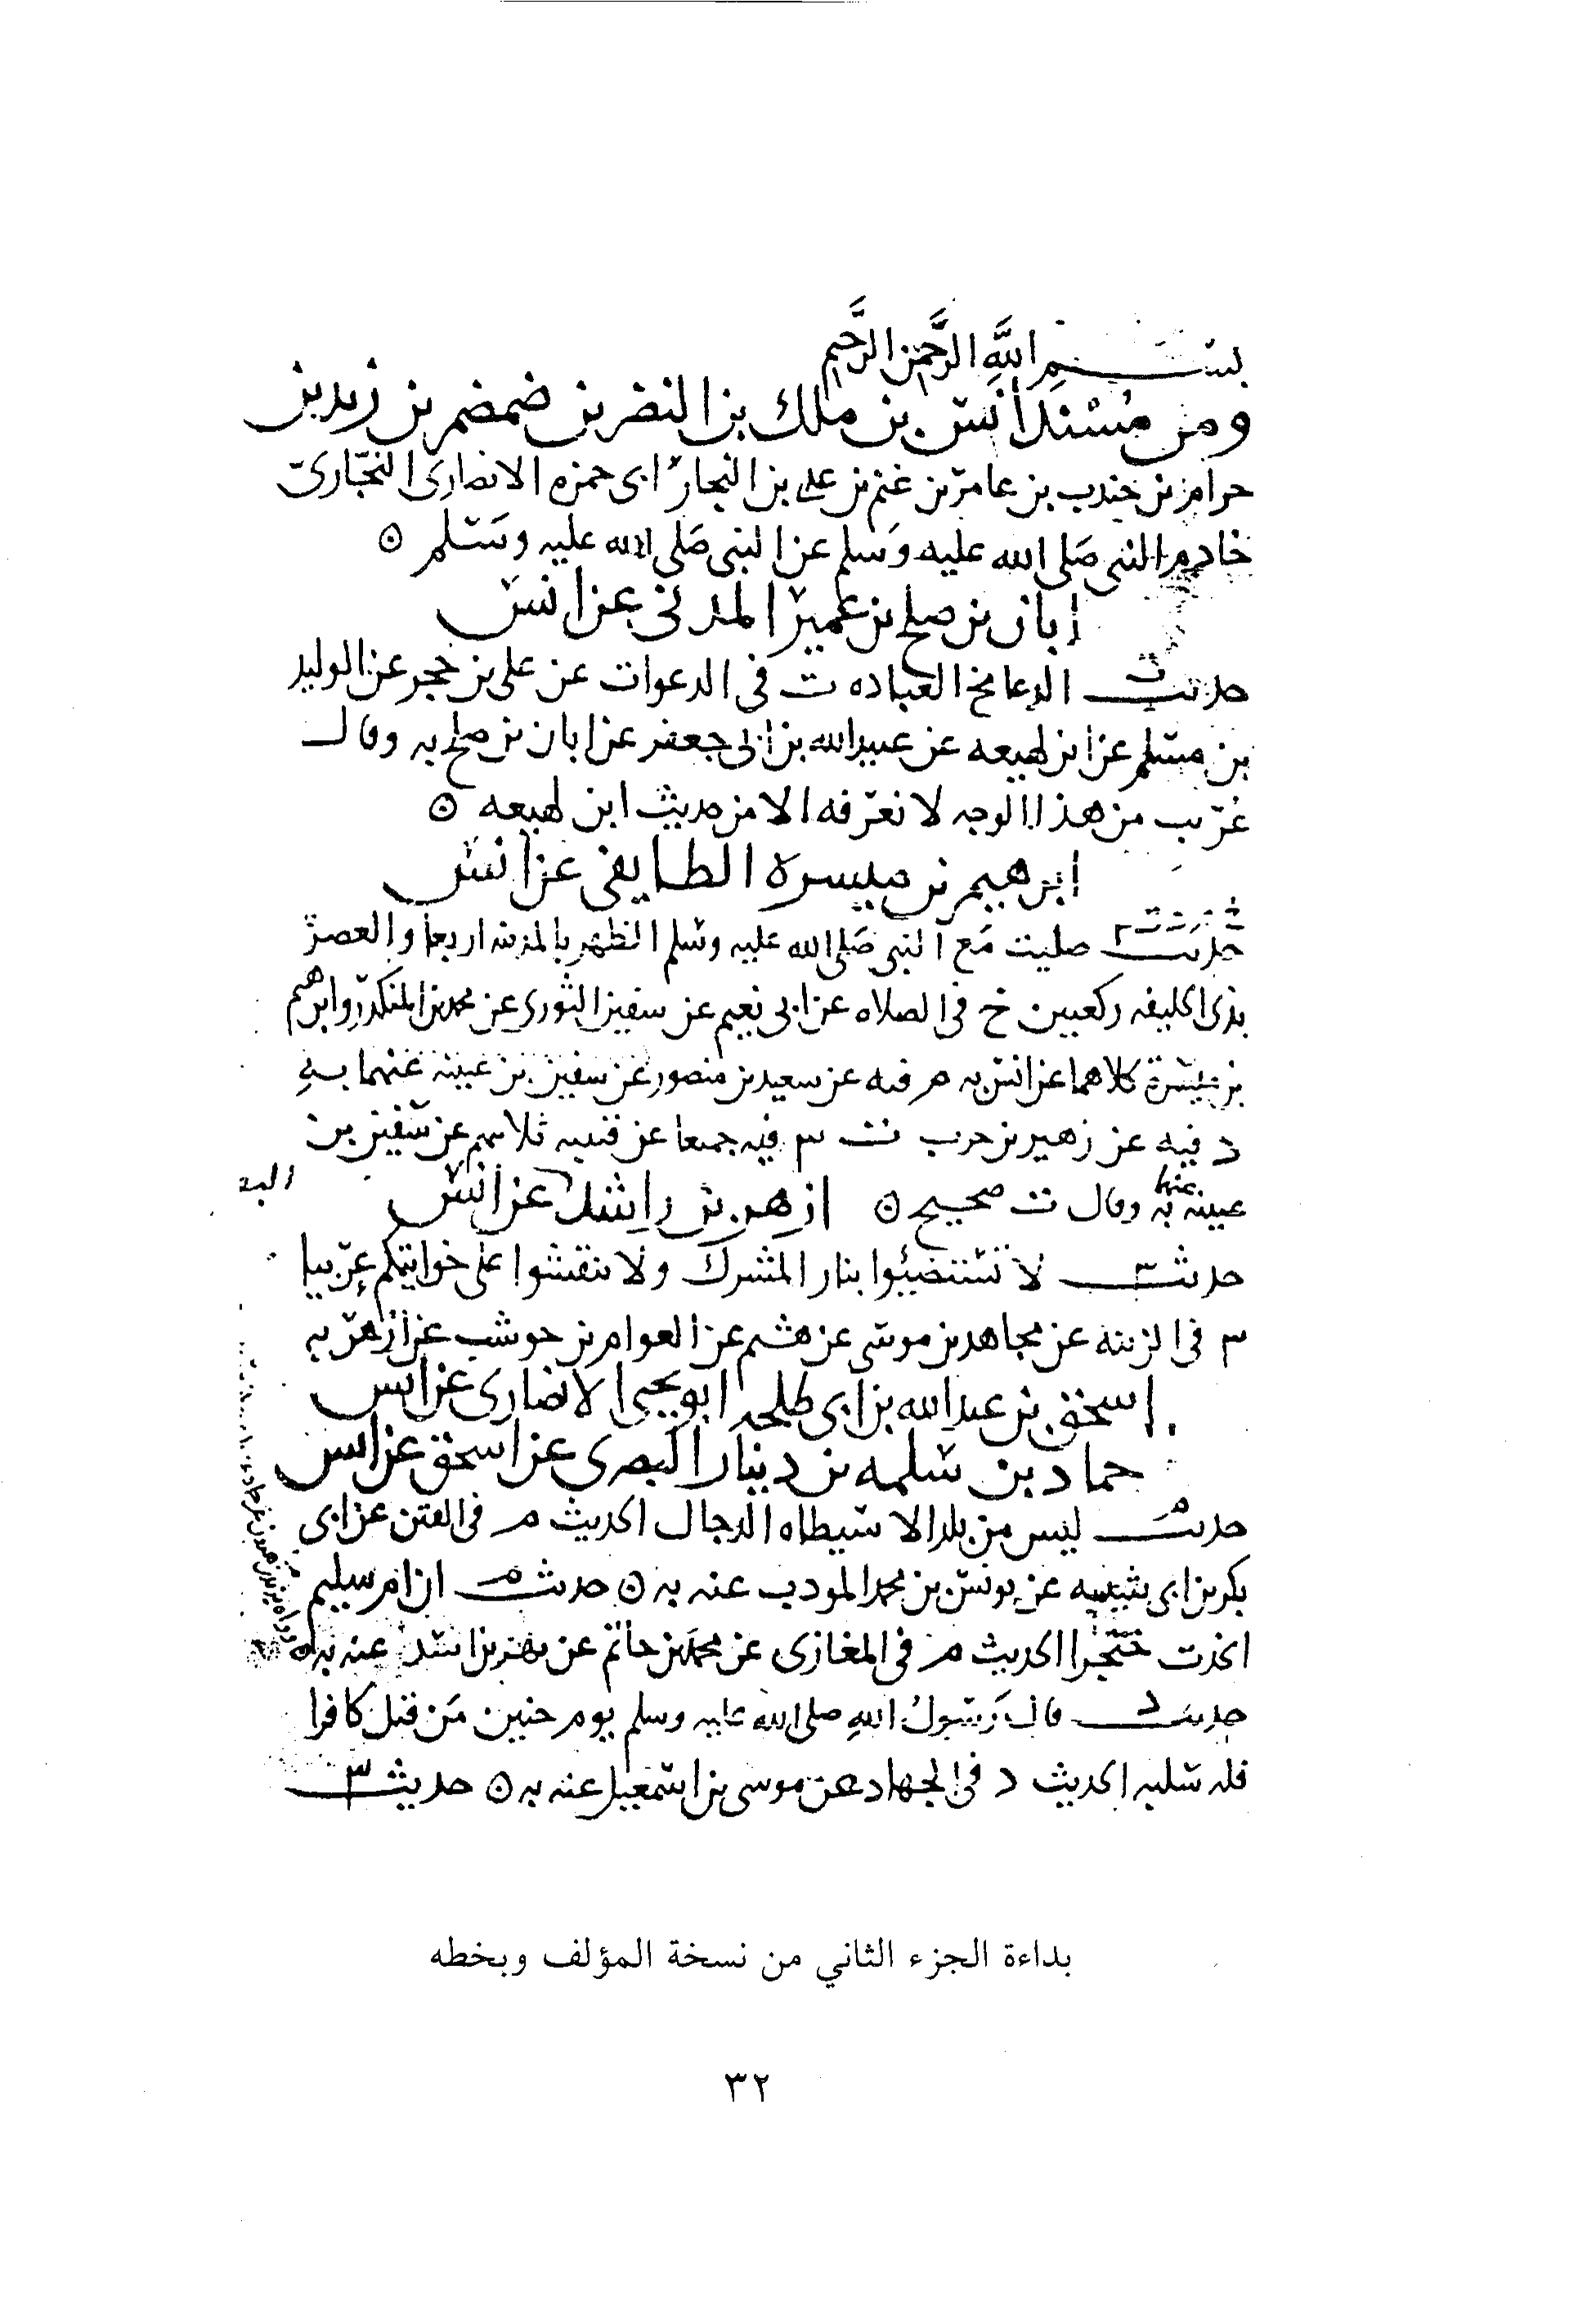 بسم اللَّهِ الرَّحمَن الرَّحيم
ومن مُسْنَد أنس بن ملك بن النضر بن ضمضم بن زيد بن
حرام بن جندب بن عامر بن غنم بن عدي بن النجار ابى حمزه الانصارى النجّارىّ
خادم النبي صَلى الله عليه وَسلم عن النبي صَلى الله عليه وسَلم ۝
ابان بن صلح بن عمير المدني عن انس
حديث الدعا مخ العباده ت فى الدعوات عن على بن حجر عن الوليد
بن مسلم عن ابن لهيعه عن عبيدالله بن ابى جعفر عن ابان بن صلح به وقال
غريب من هذا الوجه لا نعرفه الا من حديث ابن لهيعه ۝
ابرهيم بن ميسره الطايفى عن انس
حديث صليت مَع النبى صَلى الله عليه وسلم الظهر بالمدينه اربعا والعصر
بذى الحليفه ركعتين خ فى الصلاه عن ابى نعيم عن سفين الثورى عن محمد بن المنكدر وابرهيم
بن ميسرة كلاهما عن انس به م فيه عن سعيد بن منصور عن سفين بن عيينه عنهما بهِ
د فيه عن زهير بن حرب ت س فيه جميعا عن قتيبه ثلاثتهم عن سفين بن
عيينه عنهما به وقال ت صحيح ۝ ازهر بن راشد عن انس
حديث س لا تستضيئوا بنار المشرك ولا تنقشوا على خواتيمكم عربيا
س فى الزينه عن مجاهد بن موسى عن هشيم عن العوام بن حوشب عن ازهر به
اسحق بن عبدالله بن ابى طلحه ابو يحيى الانصارى عن انس
حماد بن سلمه بن دينار البصرى عن اسحق عن انس
حديث م ليس من بلد الا سيطاه الدجال الحديث م فى الفتن عن ابى
بكر بن ابى شيبه عن يونس بن محمد المودب عنه به ۝ حديث م ان ام سليم
اتخذت خنجرا الحديث م فى المغازى عن محمد بن حاتم عن بهز بن اسد عنه به ۝
حديث د قال رَسولُ اللهِ صلى الله عليه وسلم يوم حنين مَن قتل كافرا
فله سلبه الحديث د فى الجهاد عن موسى بن اسمعيل عنه به ۝ حديث س
بداءة الجزء الثاني من نسخة المؤلف وبخطه
٣٢